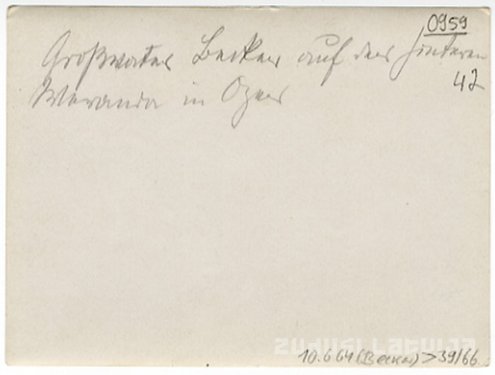 0959
Großvater Becker auf der hinteren
Veranda in Oger
42
zudusi Latvija
10.664 (Becker) > 39/66